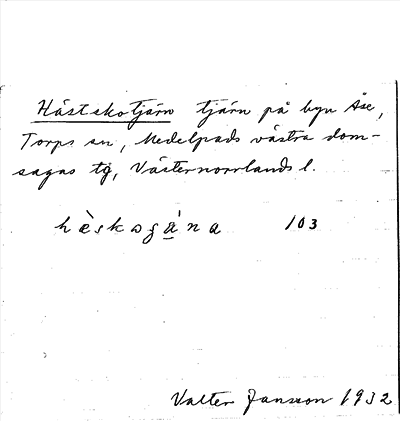 Hästskotjärn tjärn på byn Åse,
Torps sn, Medelpads västra dom-
sagas tg, Västernorrlands l.
hèskogána 103
Valter Jansson 1932